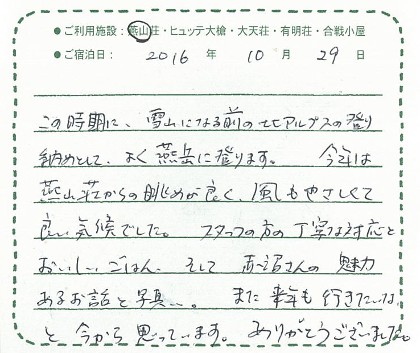 ●ご利用施設：燕山荘・ヒュッテ大槍・大天荘・有明荘・合戦小屋
●ご宿泊日： 2016 年 10 月 29 日
この時期に、雪山になる前の北アルプスの登り
納めとして、よく燕岳に登ります。 今年は
燕山荘からの眺めが良く、風もやさしくて
良い気候でした。 スタッフの方の丁寧な対応と
おいしいごはん、そして 赤沼さんの 魅力
あるお話と写真…。 また 来年も 行きたいな
と 今から 思っています。 ありがとうございました。